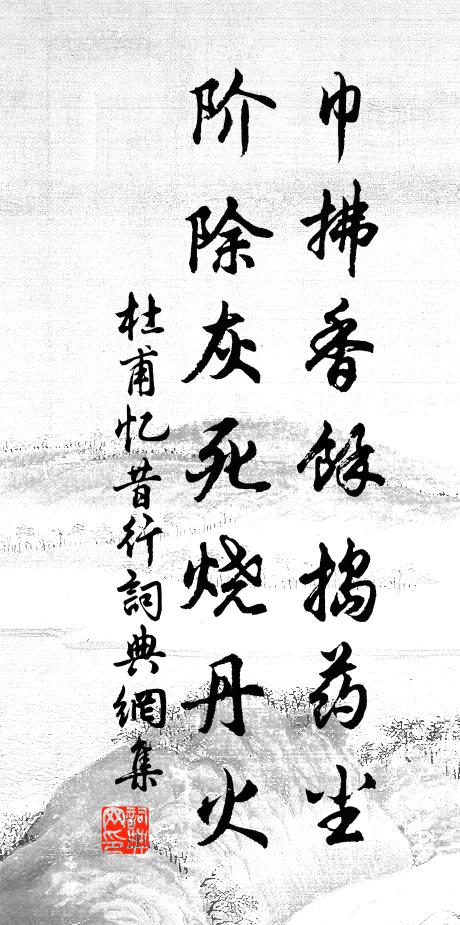 巾拂香馀捣药尘
阶除灰死烧丹火
杜甫忆昔行詞典網集